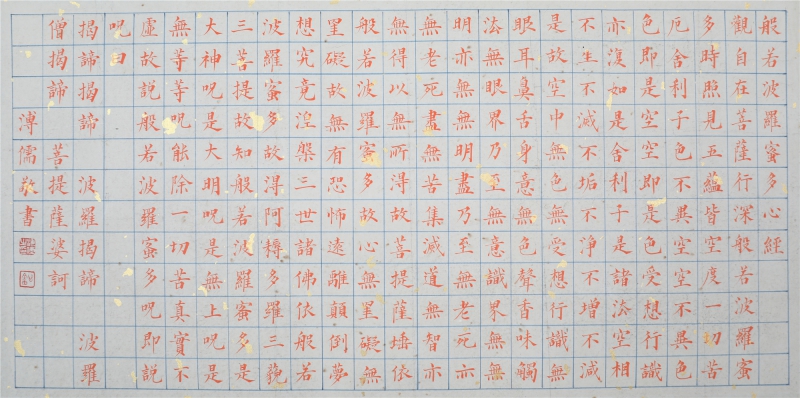 般若波羅蜜多心經
觀自在菩薩行深般若波羅蜜
多時照見五蘊皆空度一切苦
厄舍利子色不異空空不異色
色即是空空即是色受想行識
亦復如是舍利子是諸法空相
不生不滅不垢不淨不增不減
是故空中無色無受想行識無
眼耳鼻舌身意無色聲香味觸
法無眼界乃至無意識界無無
明亦無無明盡乃至無老死亦
無老死盡無苦集滅道無智亦
無得以無所得故菩提薩埵依
般若波羅蜜多故心無罣礙無
罣礙故無有恐怖遠離顛倒夢
想究竟涅槃三世諸佛依般若
波羅蜜多故得阿耨多羅三藐
三菩提故知般若波羅蜜多是
大神呪是大明呪是無上呪是
無等等呪能除一切苦真實不
虛故說般若波羅蜜多呪即說
呪曰
揭諦揭諦 波羅揭諦 波羅
僧揭諦 菩提薩婆訶
溥儒敬書